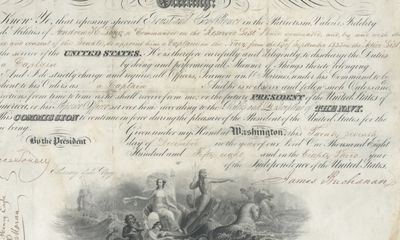 Greeting:
Know Ye, that reposing special Trust and Confidence in the Patriotism, Valour, Fidelity
and Abilities of Andrew K. Long a Commander on the Reserved List I have nominated, and by and with the
advice and consent of the Senate appointed him a Captain in the Navy from the September 1855 on the
in the service of the UNITED STATES. He is therefore carefully and diligently to discharge the Duties
of a Captain by doing and performing all Manner of Things thereto belonging.
And I do strictly charge and require all Officers, Seamen and Marines, under his Command to be
obedient to his Orders as a Captain And he is to observe and follow such Orders and
directions from time to time as he shall receive from me, or the future PRESIDENT of the United States of
America, or his Superior Officer set over him, according to the Rules and Discipline of THE NAVY.
This COMMISSION to continue in force during the pleasure of the President of the United States, for the
time being.
Given under my Hand at Washington, this Twenty seventh
day of December in the year of our Lord One Thousand Eight
Hundred and Fifty eight and in the Eighty Third year
of the Independence of the United States.
By the President
James Buchanan
Secretary of the Navy